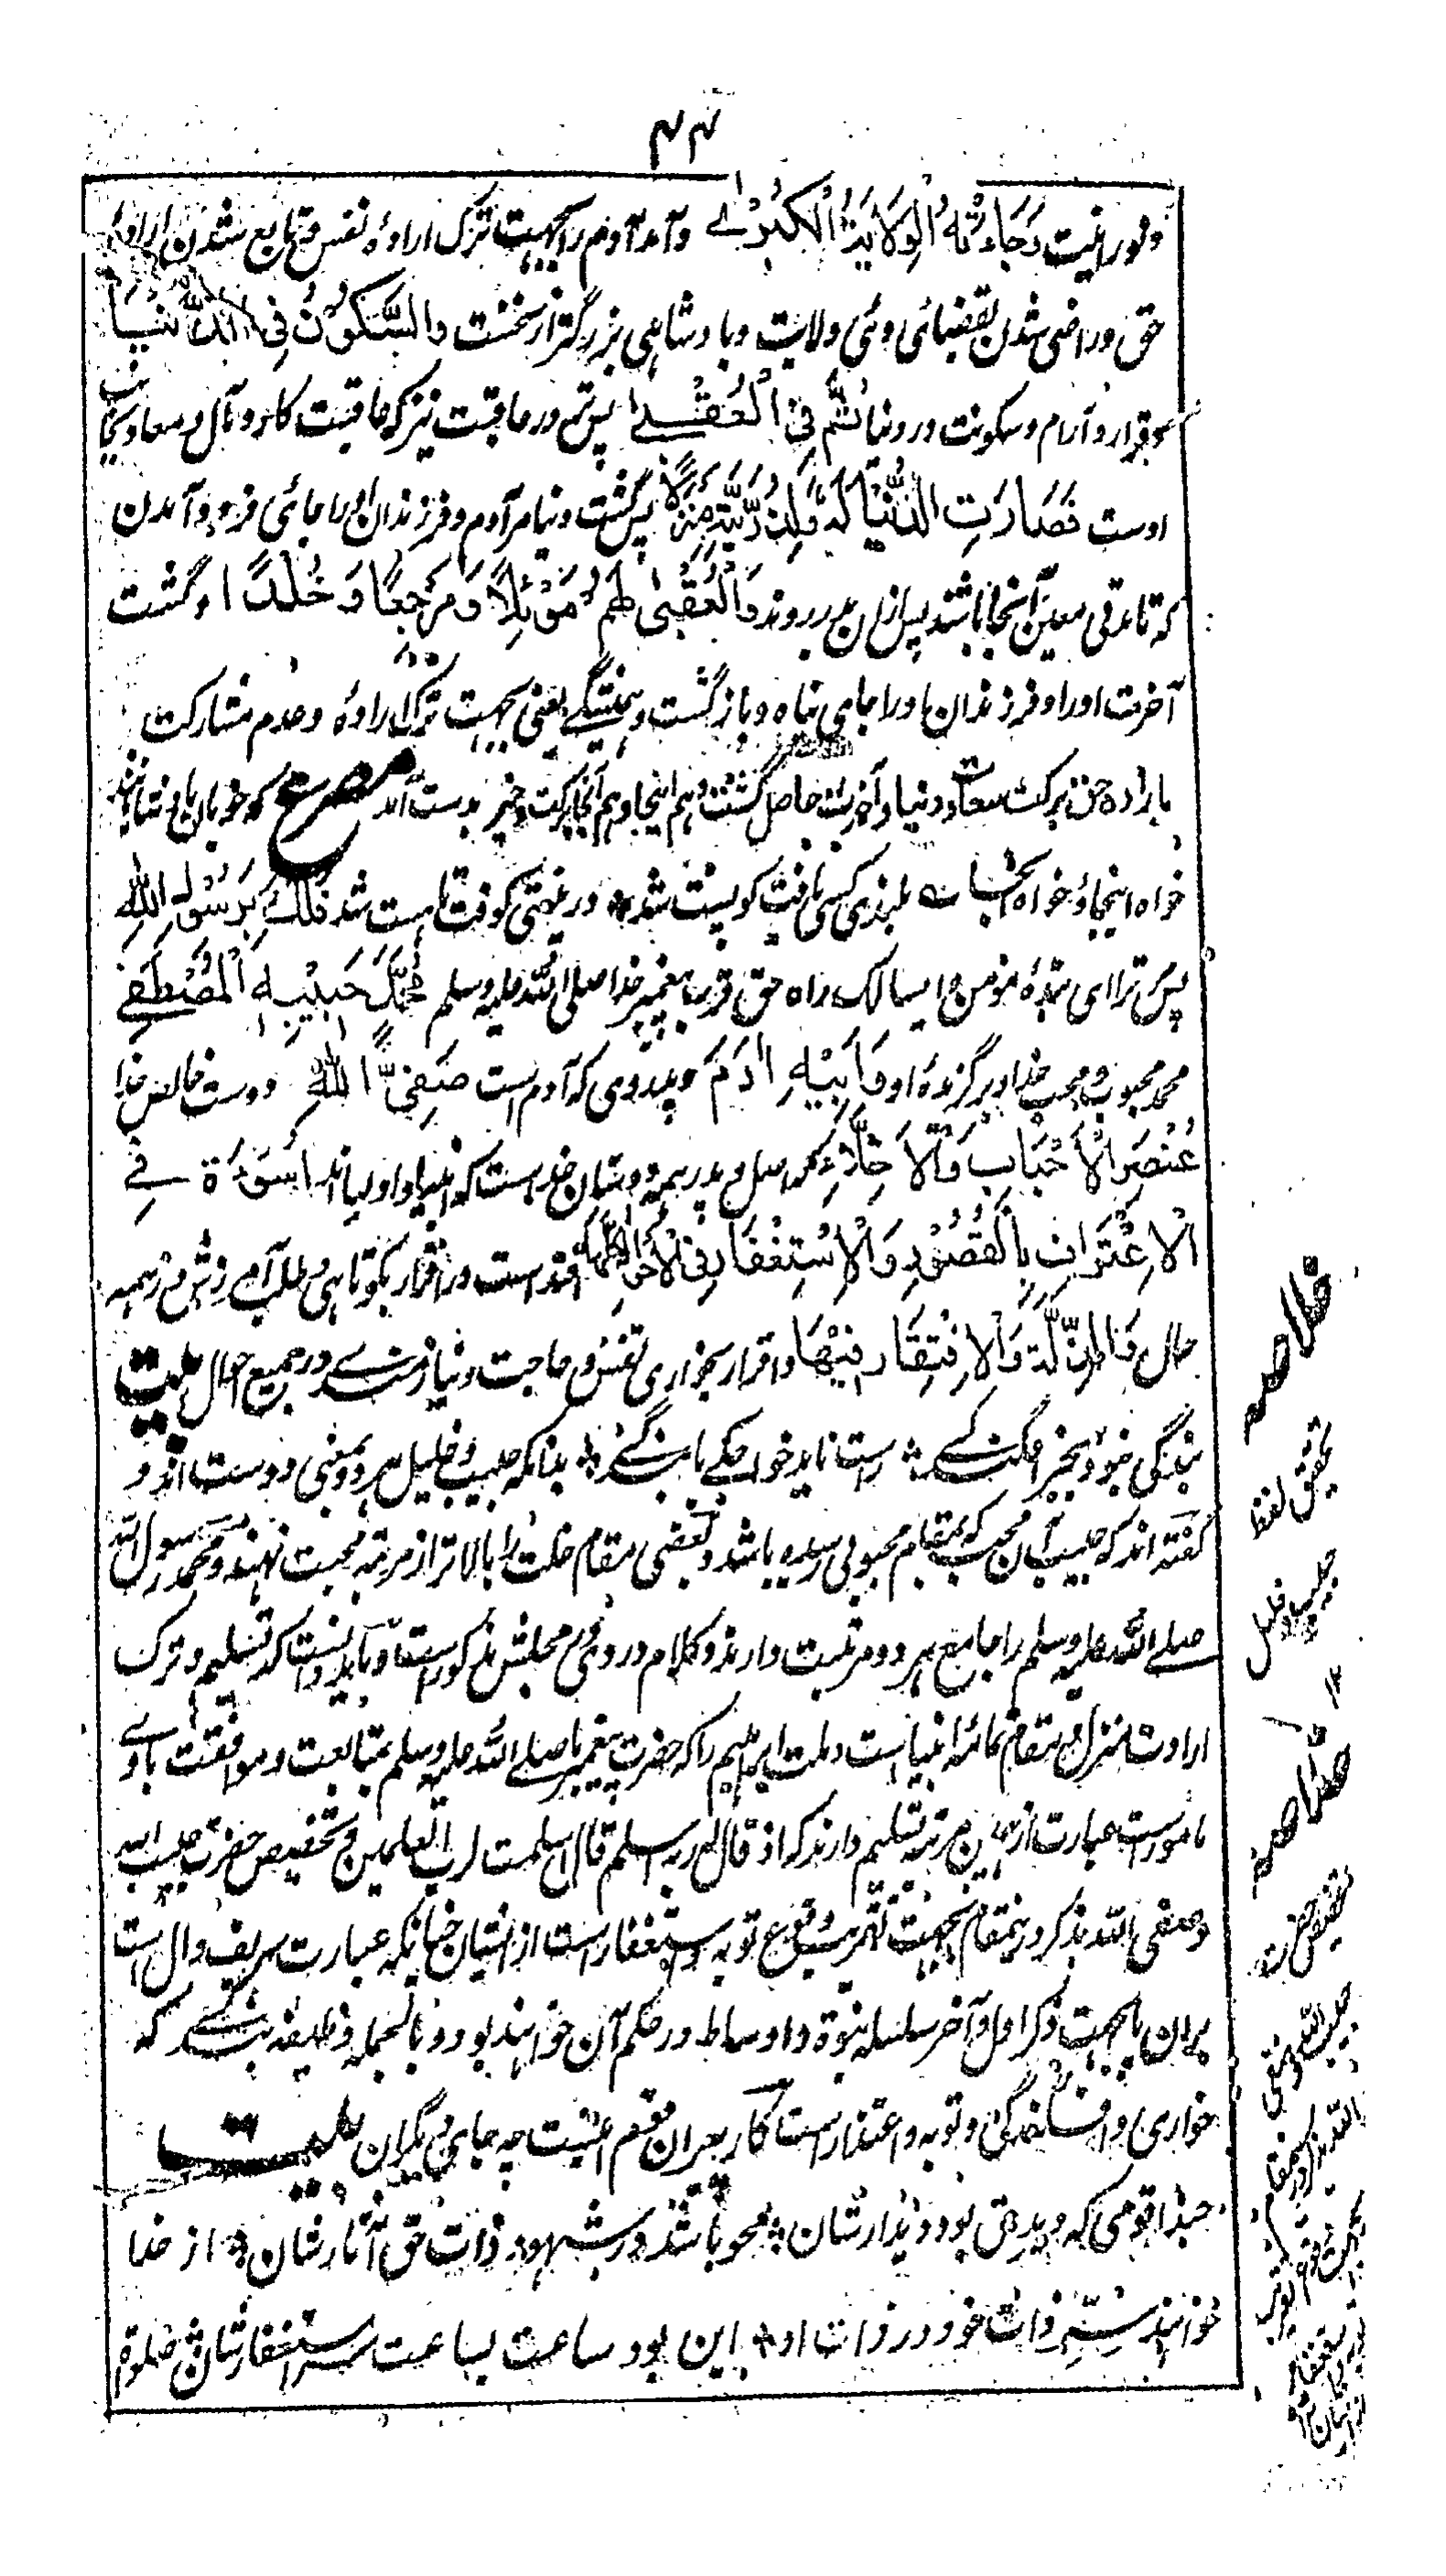 ۴۴
ونورانیت وَجَاءَتْهُ الْوِلَایَةُ الْکُبْرٰے وآمد آدم را بجهت ترک ارادهٔ نفس و تابع شدن ارادهٔ
حق وراضی شدن بقضای اوئی ولایت وبادشاهی بزرگتر از نخست وَالسُّکُوْنُ فِی الدُّنْیَا
وقرار و آرام وسکونت در دنیا ثُمَّ فِی الْعُقْبٰے پس تر در عاقبت نیز که عاقبت کار ومآل ومعاد
اوست فَصَارَتِ الدُّنْیَا لَهٗ وَلِذُرِّیَّتِهٖ مَنْزِلًا پس گشت دنیا مر آدم وفرزندان او را جائی فرود آمدن
که تا مدتی معین آنجا باشند پس ازان بدر روند وَالْعُقْبٰی لَهُمْ مَوْئِلًا وَمَرْجِعًا وَخُلْدًا وگشت
آخرت او را وفرزندان او را جای پناه وبازگشت وهمیشگے یعنی بجهت ترک ارادهٔ وعدم مشارکت
بارادهٔ حق برکت سعادت دنیا وآخرت حاصل گشت وهم اینجا وهم آنجا برکت وخیر بدست آمد مصرع که خوبان
خواه اینجا و خواه آنجا بلندی کسی یافت کو پست شد در نیستی کوفت تا هست شد فَلَکَ بِرَسُوْلِ اللّٰهِ
پس ترا ای بندهٔ مومن و ای سالک راه حق به پیغمبر خدا صلی الله علیه وسلم مُحَمَّدٍ حَبِیْبِهِ الْمُصْطَفٰے
محمد محبوب ومحب خدا وبرگزیدهٔ او وَاَبِیْهِ اٰدَمَ وپدر وی که آدم است صَفِیِّ اللّٰهِ دوست خالص خدا
عُنْصُرِ الْاَحْبَابِ وَالْاَخِلَّاءِ که اصل وپدر همه دوستان خداست که انبیا و اولیا اند اُسْوَةٌ فِے
الْاِعْتِرَافِ بِالْقُصُوْرِ وَالْاِسْتِغْفَارِ فِی الْاَحْوَالِ کُلِّهَا اقتداست در اقرار بکوتاهی وطلب آمرزش در همه
حال وَالذِّلَّةِ وَالْاِفْتِقَارِ فِیْهَا واقرار بخواری نفس وحاجت ونیازمندے در جمیع احوال بیت
بندگی نبود بجز افکندگے راست ناید خواجگے با بندگے بدانکه حبیب وخلیل هر دو بمعنی دوست اند و
گفته اند که حبیب آن محب که بمقام محبوبی رسیده باشد وبعضی مقام خلت را بالاتر از مرتبه محبت نهند ومحمد رسول الله
صلے الله علیه وسلم را جامع هر دو مرتبت دارند وکلام درو فی محلش مذکور است وباید دانست که تسلیم وترک
ارادت منزل ومقام تمام انبیا است وملت ابراهیم را که حضرت پیغمبر ما صلے الله علیه وسلم بمتابعت وموافقت باوے
مامورست عبارت از همین مرتبه تسلیم دارند که اذ قال له ربه اسلم قال اسلمت لرب العلمین وتخصیص حضرت حبیب الله
وصفی الله بذکر درینمقام بجهت وقوع توبه واستغفار است از ایشان چنانکه عبارت شریف دال است
بران یا بجهت ذکر اول وآخر سلسله نبوة و اوساط در حکم آن خواهند بود وبالجمله وظیفه بندگے که
خواری وافکندگی وتوبه واعتذارست کار پیران قوم اینست چه جای دیگران بیت
حبذا قومی که دید حق بود دیدارشان محو باشد در شهود ذات حق آثارشان از خدا
خواهند ستر ذات خود در ذات او این بود ساعت بساعت سر استغفارشان
خلاصه
تحقیق لفظ
حبیب وخلیل
۱۲
خلاصه
تخصیص حضرت
حبیب الله وصفی
الله بذکر درینمقام